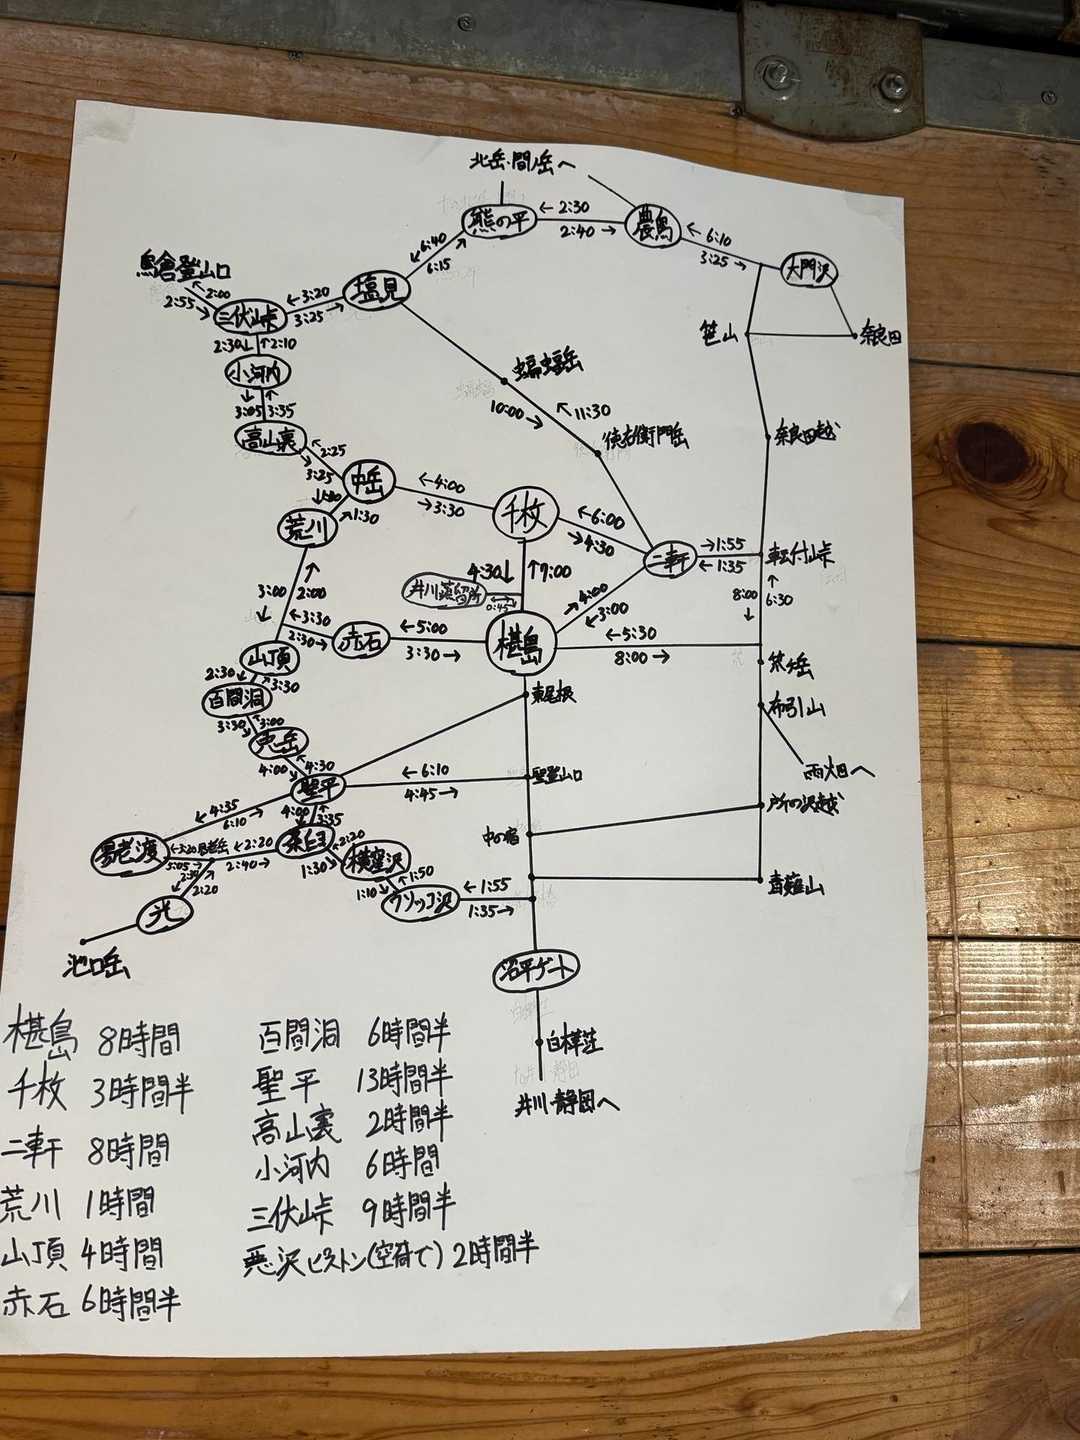 北岳・間ノ岳へ
熊の平
←2:30
2:40→
農鳥
←6:10
3:25→
大門沢
↙6:40
6:15↗
鳥倉登山口
←2:00
2:55→
三伏峠
←3:20
3:25→
塩見
笹山
奈良田
2:30↓ ↑2:10
小河内
蝙蝠岳
↓ ↑
3:05 3:35
10:00→
↖11:30
徳右衛門岳
奈良田越
高山裏
↖2:25
3:25↘
中岳
←4:00
→3:30
千枚
←6:00
→4:30
↗1:30
荒川
二軒
→1:55
←1:35
転付峠
4:30↓ ↑7:00
井川蒸留所
0:45
3:00
↓
↑
2:00
↗4:00
↙3:00
8:00
↓
↑
6:30
←3:30
2:30→
赤石
←5:00
3:30→
椹島
←5:30
8:00→
山頂
2:30↙
↗3:30
笊ヶ岳
百間洞
東尾根
布引山
3:30↘
↖3:00
兎岳
雨畑へ
↖4:30
4:00↘
聖平
←6:10
4:45→
聖登山口
所の沢越
←4:35
6:10→
4:00↓
↑3:35
中の宿
易老渡
←3:20
易老岳
5:05→
←2:20
2:40→
茶臼
↖2:20
1:30↘
横窪沢
青薙山
2:20
↖1:50
1:10↘
ウソッコ沢
←1:55
1:35→
光
池口岳
沼平ゲート
白樺荘
井川・静岡へ
椹島 8時間
千枚 3時間半
二軒 8時間
荒川 1時間
山頂 4時間
赤石 6時間半
百間洞 6時間半
聖平 13時間半
高山裏 2時間半
小河内 6時間
三伏峠 9時間半
悪沢ピストン(空荷で) 2時間半